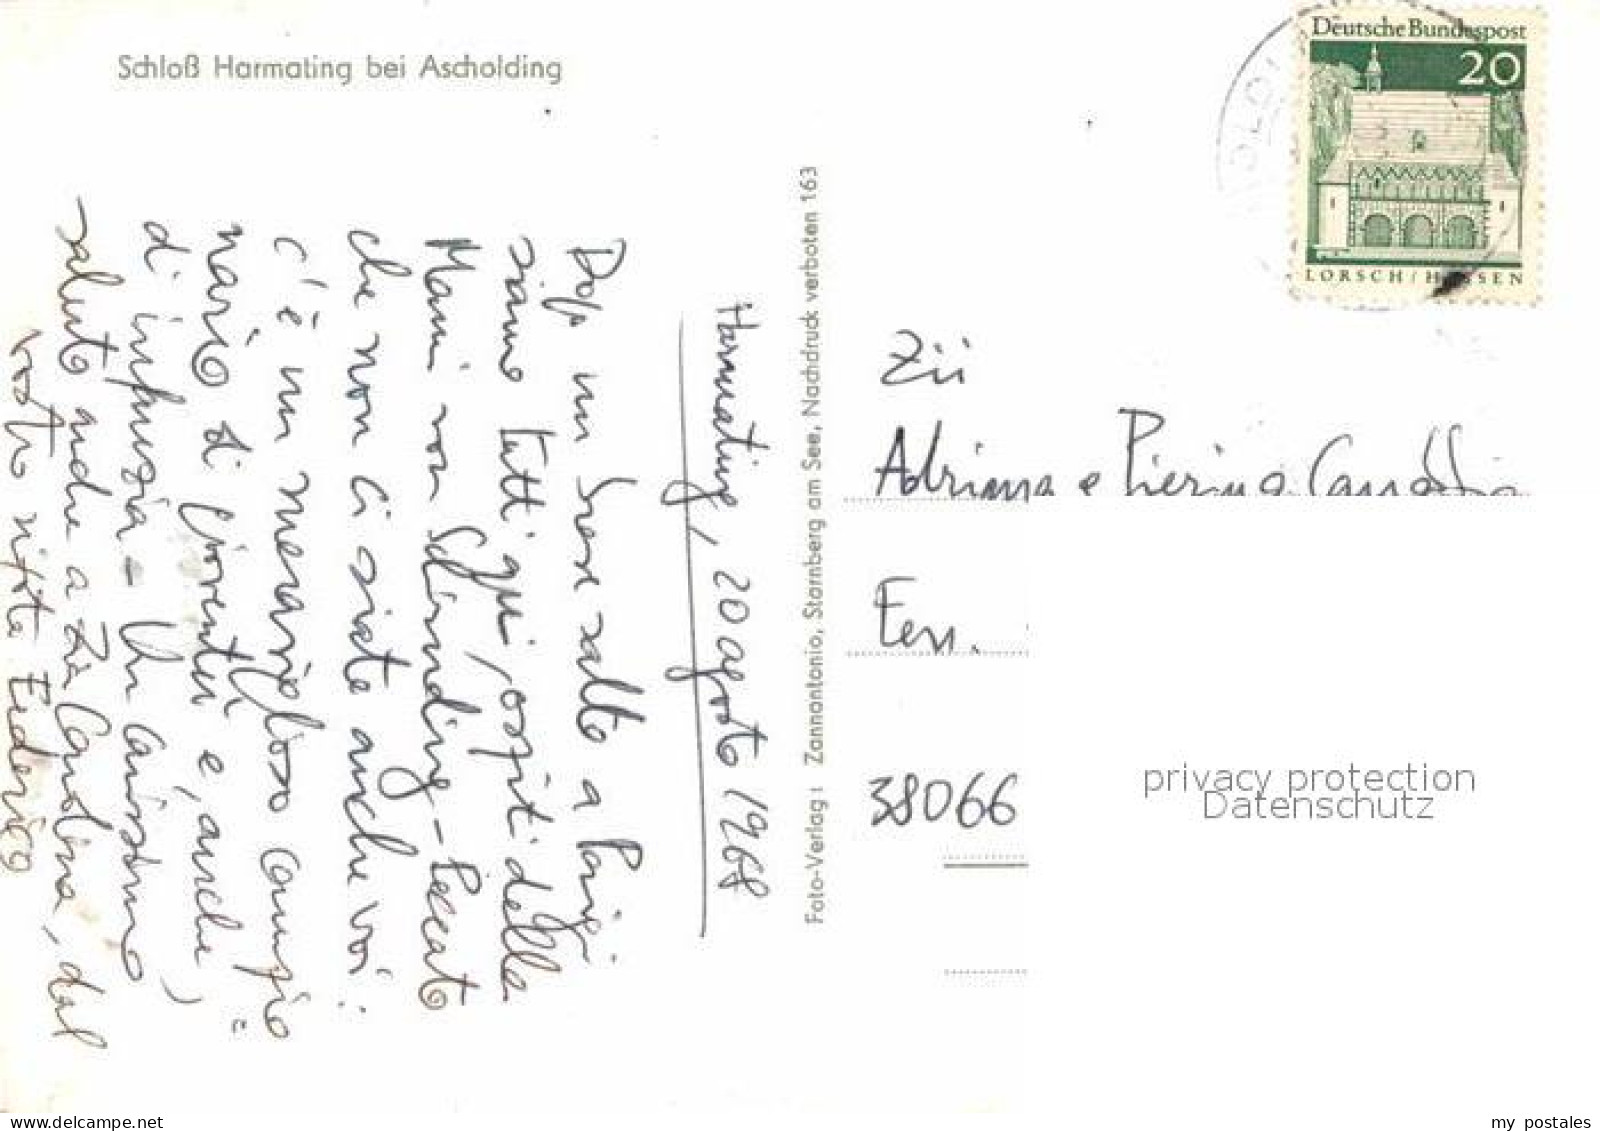 Schloß Harmating bei Ascholding
Harmating, 20 agosto 1968
Dopo un breve salto a Parigi
siamo tutti qui, ospiti della
Mami von Schirnding - Peccato
che non ci siate anche voi:
c'è un meraviglioso campio=
nario di gioventù e, anche,
di infanzia - Un carissimo
saluto anche a Zia Carolina, dal
vostro nipote Federico
Foto-Verlag: Zannantonio, Starnberg am See, Nachdruck verboten 163
Deutsche Bundespost
20
LORSCH / HESSEN
Zii
Adriana e Pierino
38066
privacy protection
Datenschutz
www.delcampe.net
my_postales